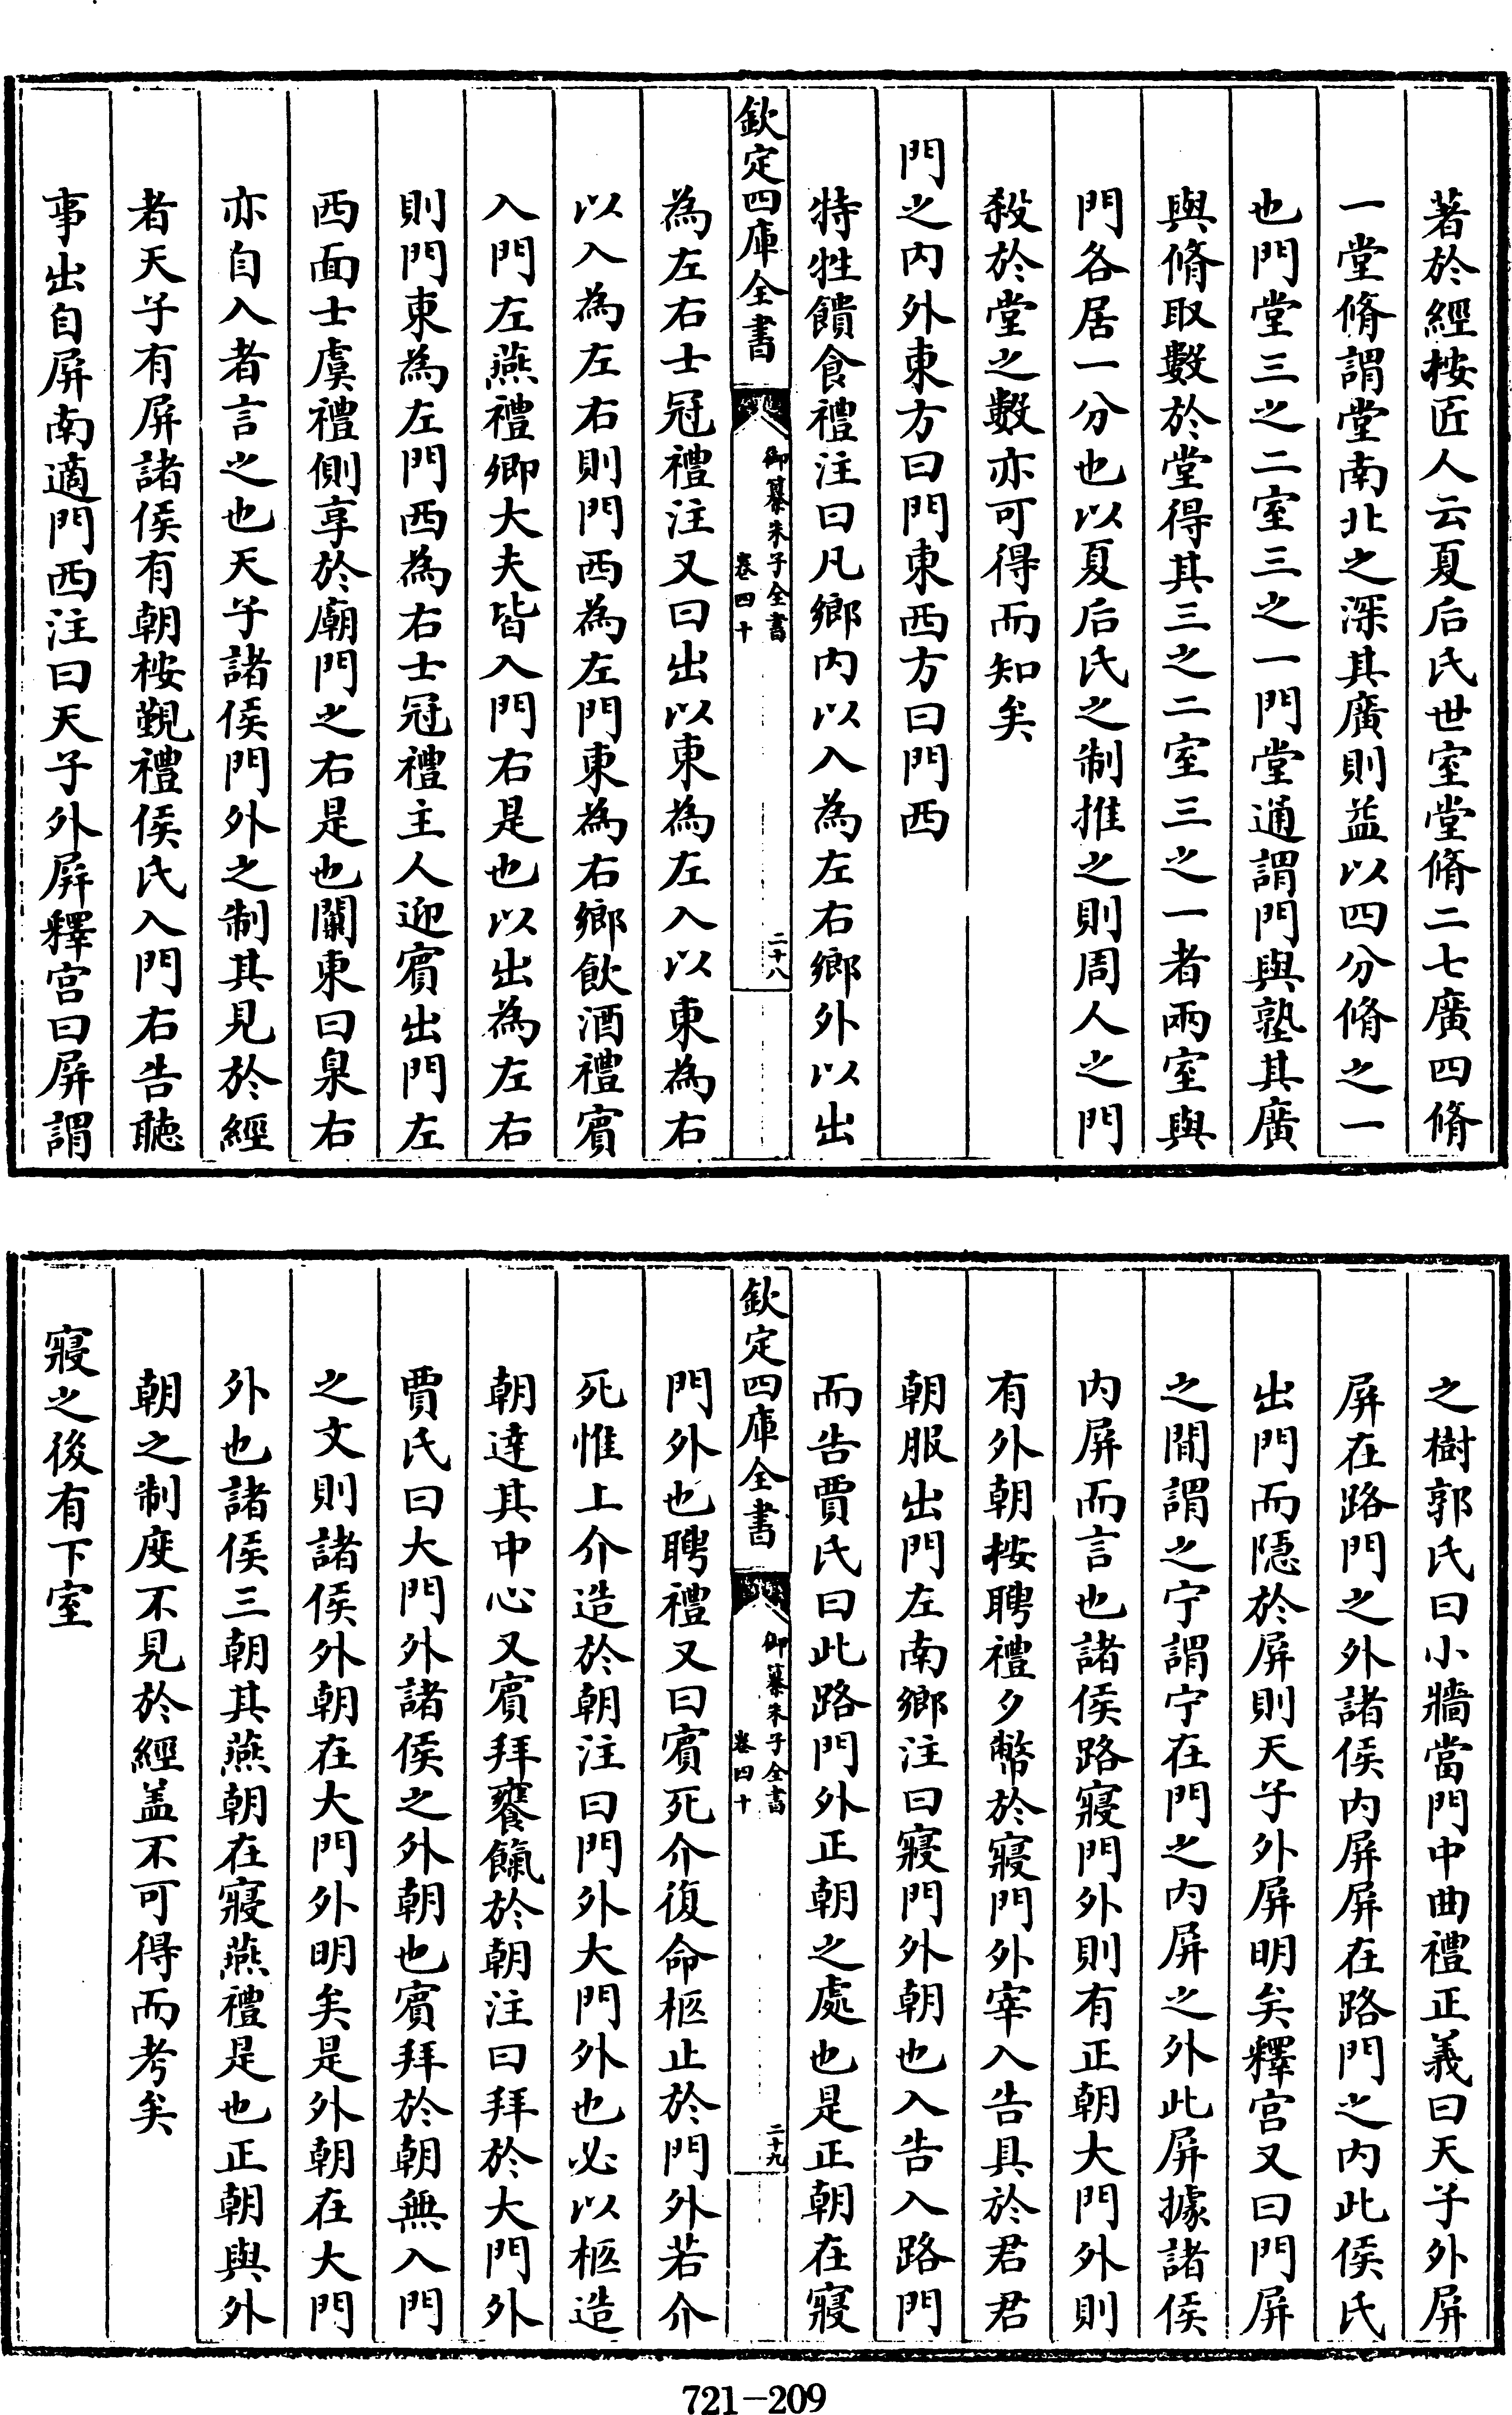 著於經桉匠人云夏后氏世室堂脩二七廣四脩
一堂脩謂堂南北之深其廣則益以四分脩之一
也門堂三之二室三之一門堂通謂門與塾其廣
與脩取數於堂得其三之二室三之一者兩室與
門各居一分也以夏后氏之制推之則周人之門
殺於堂之數亦可得而知矣
門之内外東方曰門東西方曰門西
特牲饋食禮注曰凡鄉内以入為左右鄉外以出
欽定四庫全書
御纂朱子全書
卷四十
二十八
為左右士冠禮注又曰出以東為左入以東為右
以入為左右則門西為左門東為右鄉飲酒禮賓
入門左燕禮卿大夫皆入門右是也以出為左右
則門東為左門西為右士冠禮主人迎賓出門左
西面士虞禮側享於廟門之右是也闑東曰臬右
亦自入者言之也天子諸侯門外之制其見於經
者天子有屏諸侯有朝桉覲禮侯氏入門右告聽
事出自屏南適門西注曰天子外屏釋宫曰屏謂
之樹郭氏曰小牆當門中曲禮正義曰天子外屏
屏在路門之外諸侯内屏屏在路門之内此侯氏
出門而隱於屏則天子外屏明矣釋宫又曰門屏
之間謂之宁謂宁在門之内屏之外此屏據諸侯
内屏而言也諸侯路寢門外則有正朝大門外則
有外朝桉聘禮夕幣於寢門外宰入告具於君君
朝服出門左南鄉注曰寢門外朝也入告入路門
而告賈氏曰此路門外正朝之處也是正朝在寢
欽定四庫全書
御纂朱子全書
卷四十
二十九
門外也聘禮又曰賓死介復命柩止於門外若介
死惟上介造於朝注曰門外大門外也必以柩造
朝達其中心又賓拜饔餼於朝注曰拜於大門外
賈氏曰大門外諸侯之外朝也賓拜於朝無入門
之文則諸侯外朝在大門外明矣是外朝在大門
外也諸侯三朝其燕朝在寢燕禮是也正朝與外
朝之制度不見於經盖不可得而考矣
寢之後有下室
721-209